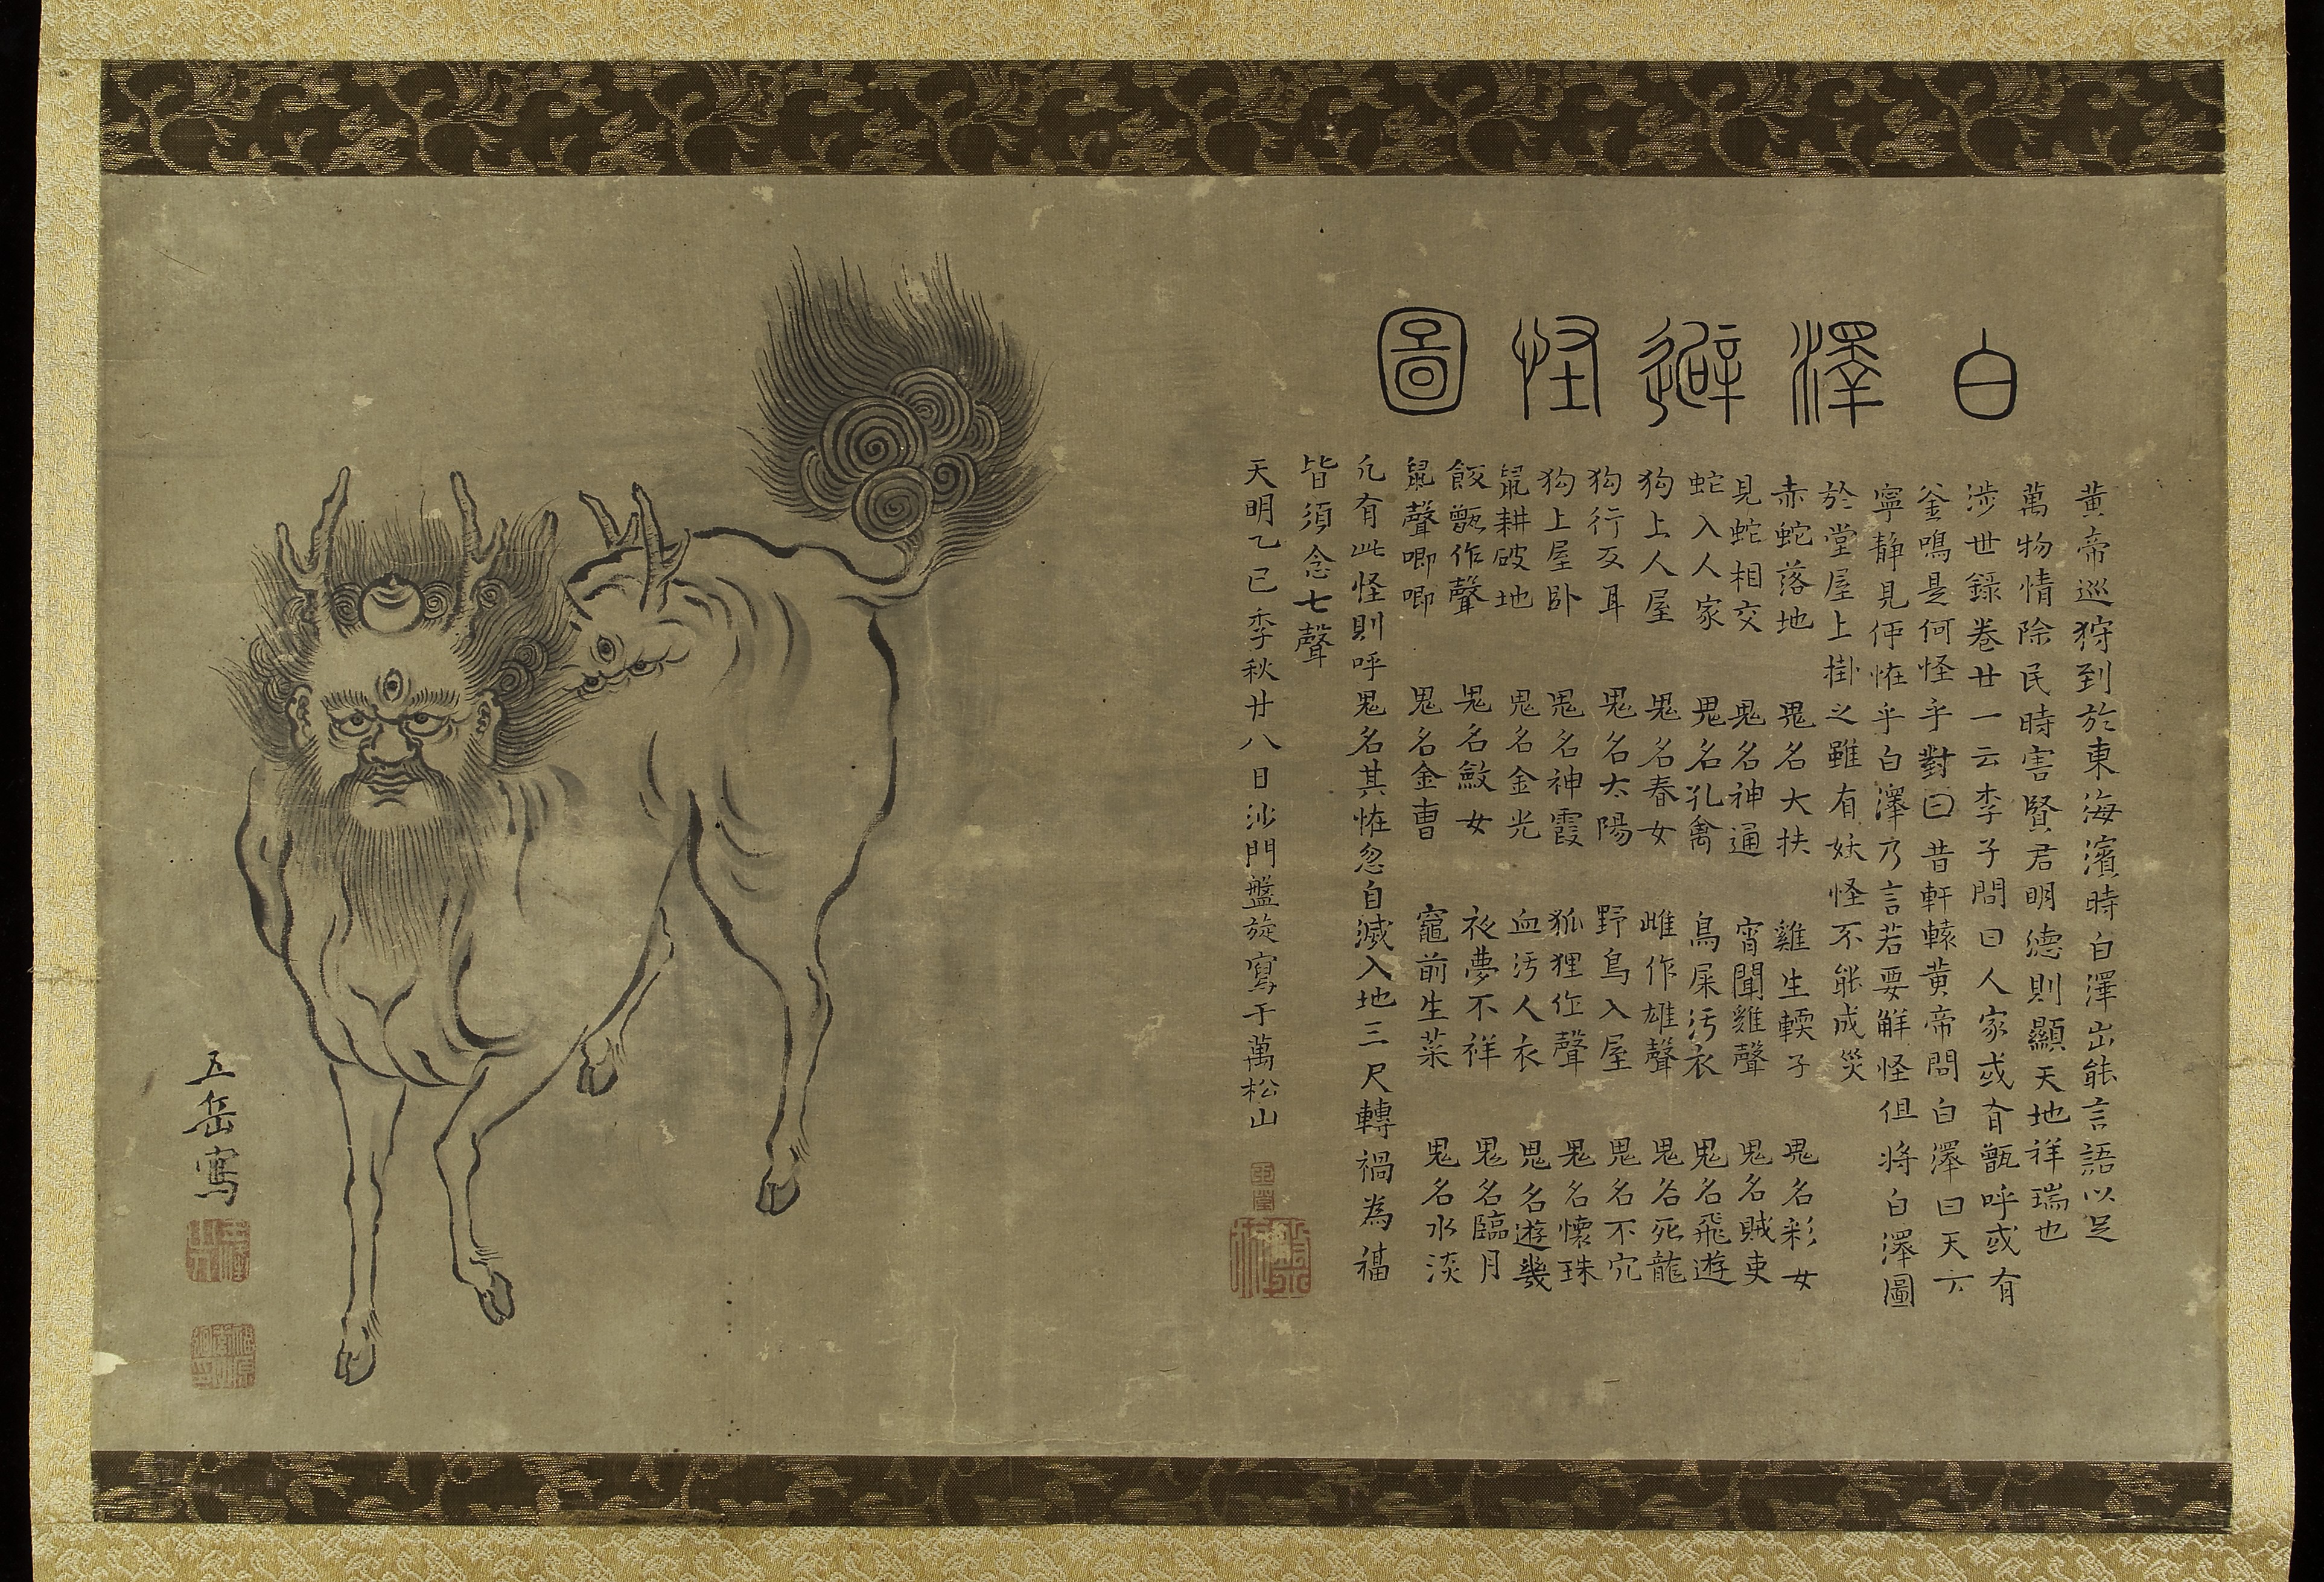 白澤避怪圖
黃帝巡狩到於東海濱時白澤出能言語以足
萬物情除民時害賢君明德則顯天地祥瑞也
涉世錄卷廿一云李子問曰人家或有甑呼或有
釜鳴是何怪乎對曰昔軒轅黃帝問白澤曰天六
寧靜見何恠乎白澤乃言若要解怪但將白澤圖
於堂屋上掛之雖有妖怪不能成災
赤蛇落地 鬼名大扶 雞生輭子 鬼名彩女
見蛇相交 鬼名神通 宵聞雞聲 鬼名賊吏
蛇入人家 鬼名孔禽 鳥屎汚衣 鬼名飛遊
狗上人屋 鬼名春女 雌作雄聲 鬼名死龍
狗行反耳 鬼名太陽 野鳥入屋 鬼名不宂
狗上屋臥 鬼名神霞 狐狸作聲 鬼名懷珠
鼠耕破地 鬼名金光 血汚人衣 鬼名遊幾
飯甑作聲 鬼名斂女 夜夢不祥 鬼名臨月
鼠聲唧唧 鬼名金曹 竈前生菜 鬼名水淡
凡有此怪則呼鬼名其恠忽自滅入地三尺轉禍為福
皆須念七聲
天明乙巳季秋廿八日沙門盤旋寫于萬松山
五岳寫